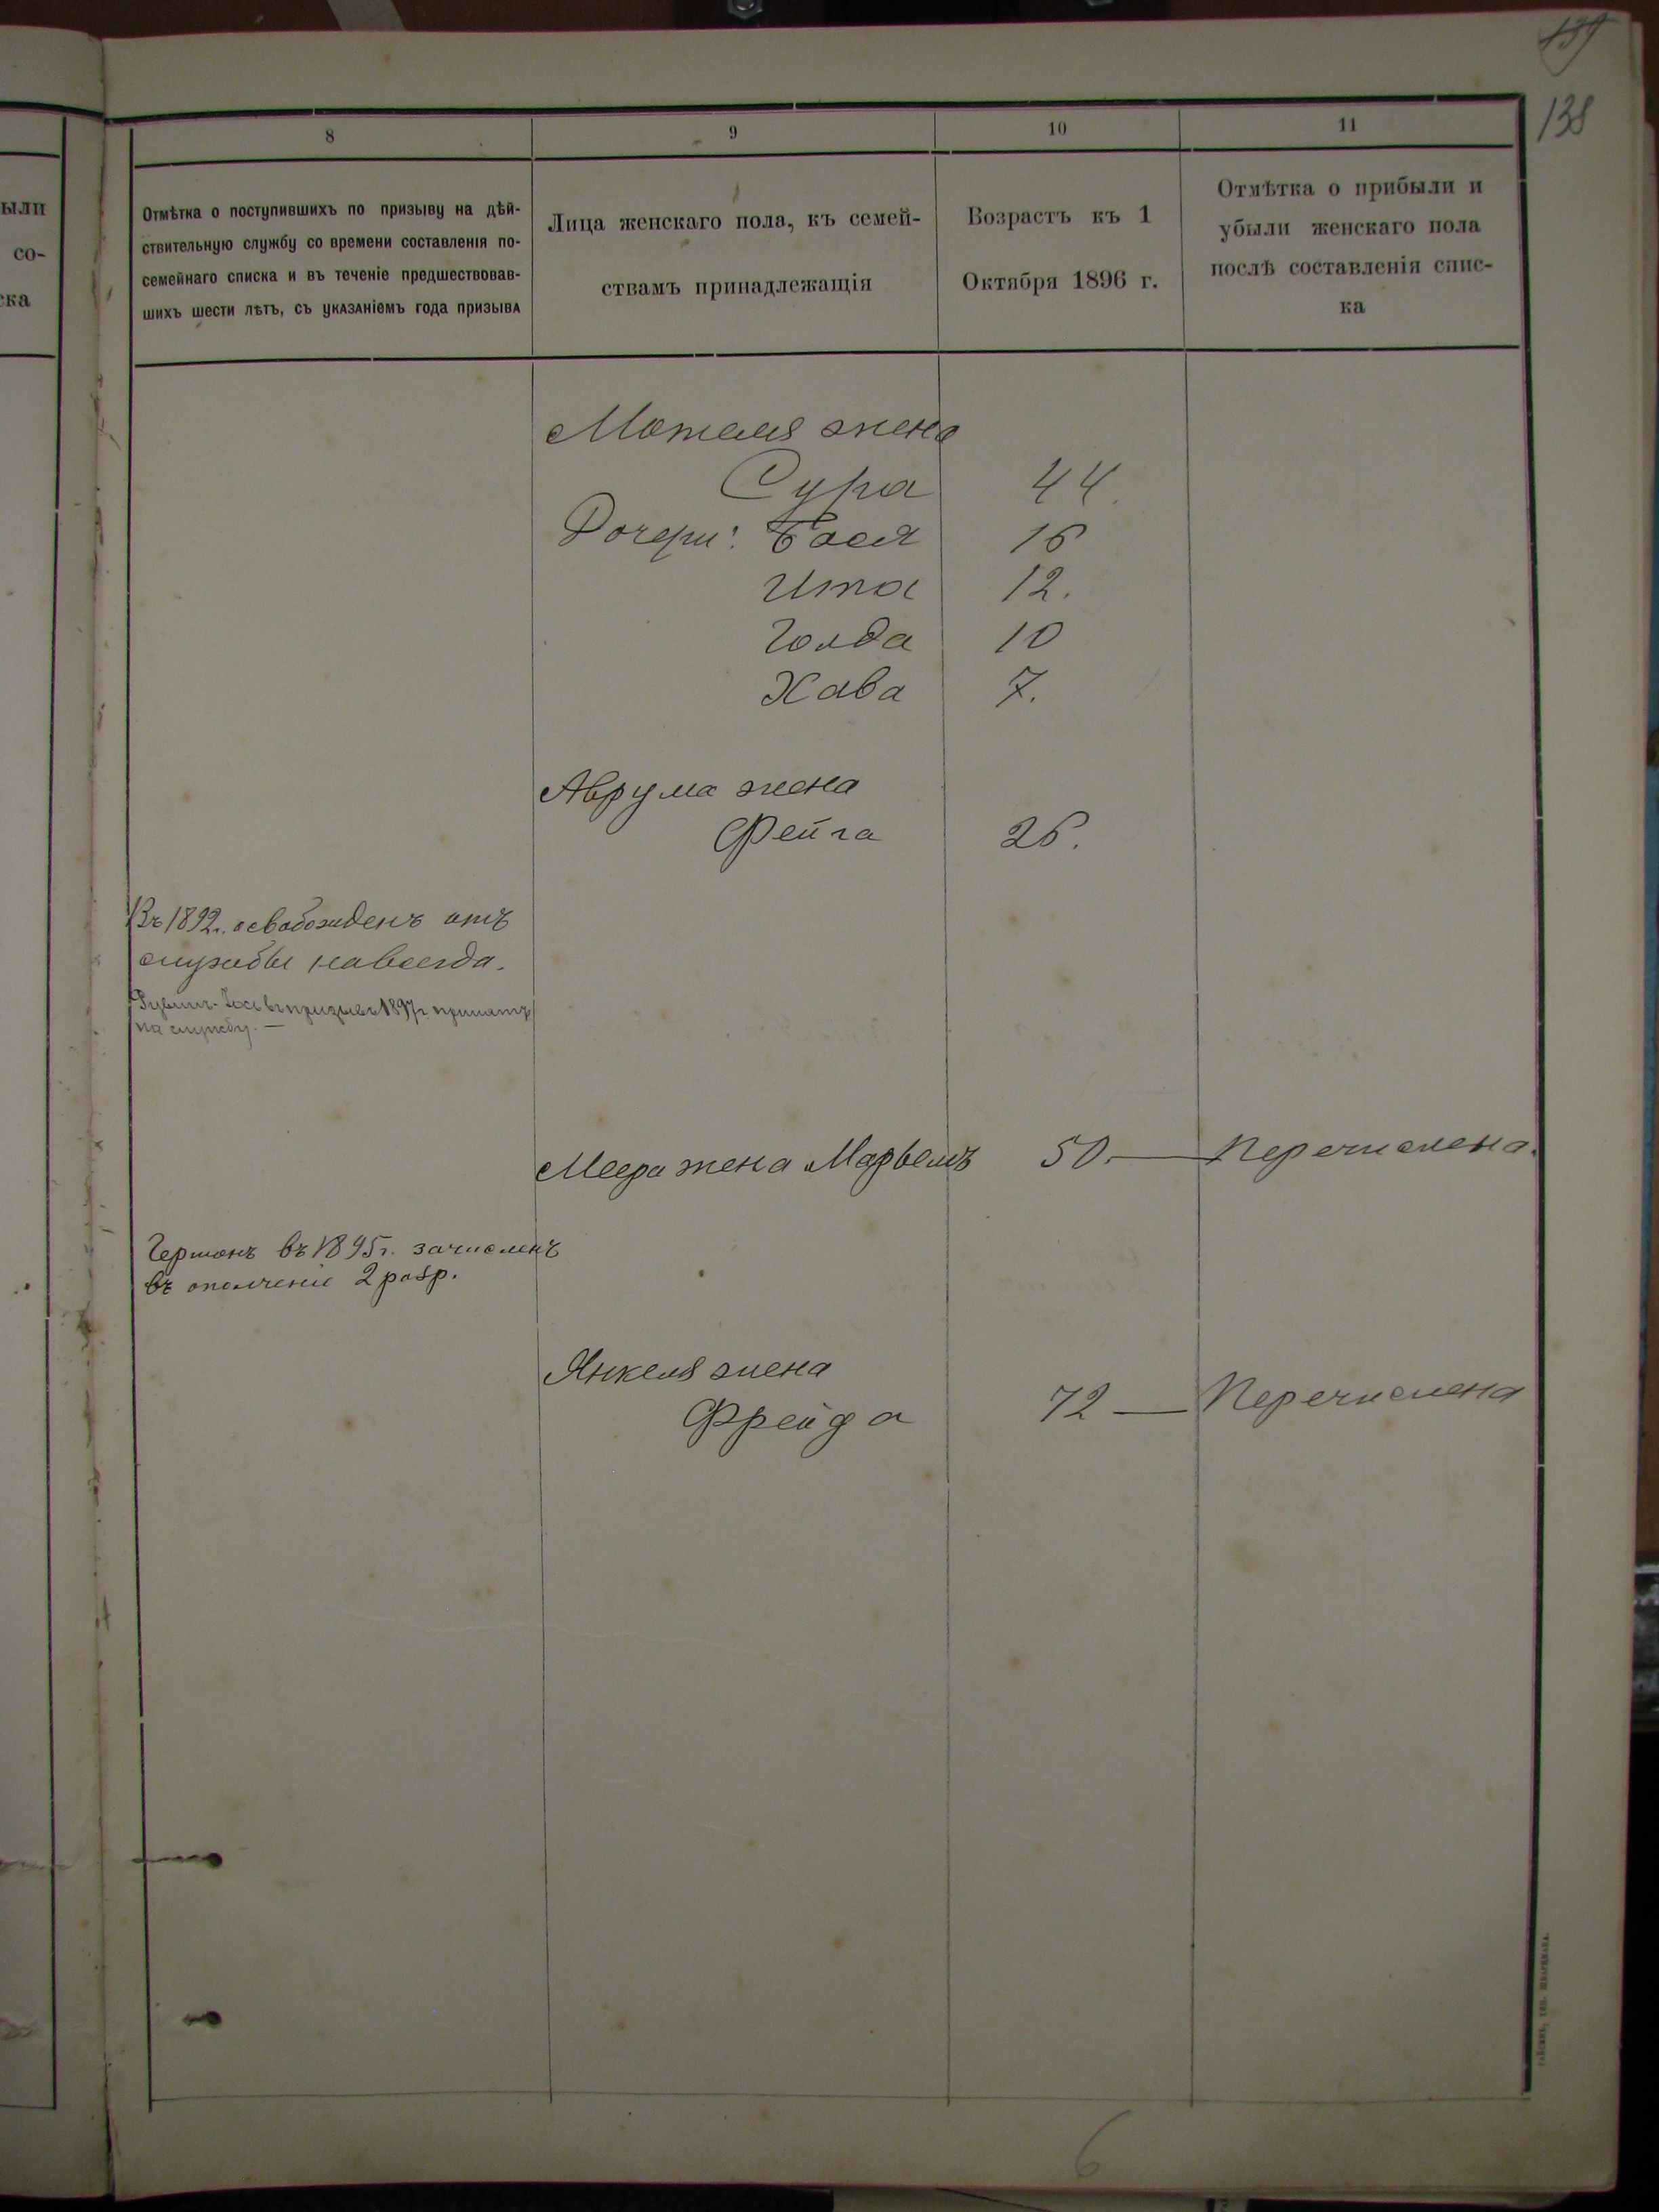 138
8
9
10
11
Отмѣтка о поступившихъ по призыву на дѣй-
ствительную службу со времени составленія по-
семейнаго списка и въ теченіе предшествовав-
шихъ шести лѣтъ, съ указаніемъ года призыва
Лица женскаго пола, къ семей-
ствамъ принадлежащія
Возрастъ къ 1
Октября 1896 г.
Отмѣтка о прибыли и
убыли женскаго пола
послѣ составленія спис-
ка
ыли
со-
ска
Мотеля жена
Сура 44.
Дочери: Бася 16
Ита 12.
Голда 10
Хава 7.
Аврума жена
Фейга 26.
Въ 1892г. освобожденъ отъ
службы навсегда.
въ призывъ 1897г. принятъ
на службу. —
Меера жена 50. — Перечислена.
Гершонъ въ 1895г. зачисленъ
въ ополченіе 2 разр.
Янкеля жена
Фрейда 72 — Перечислена
6